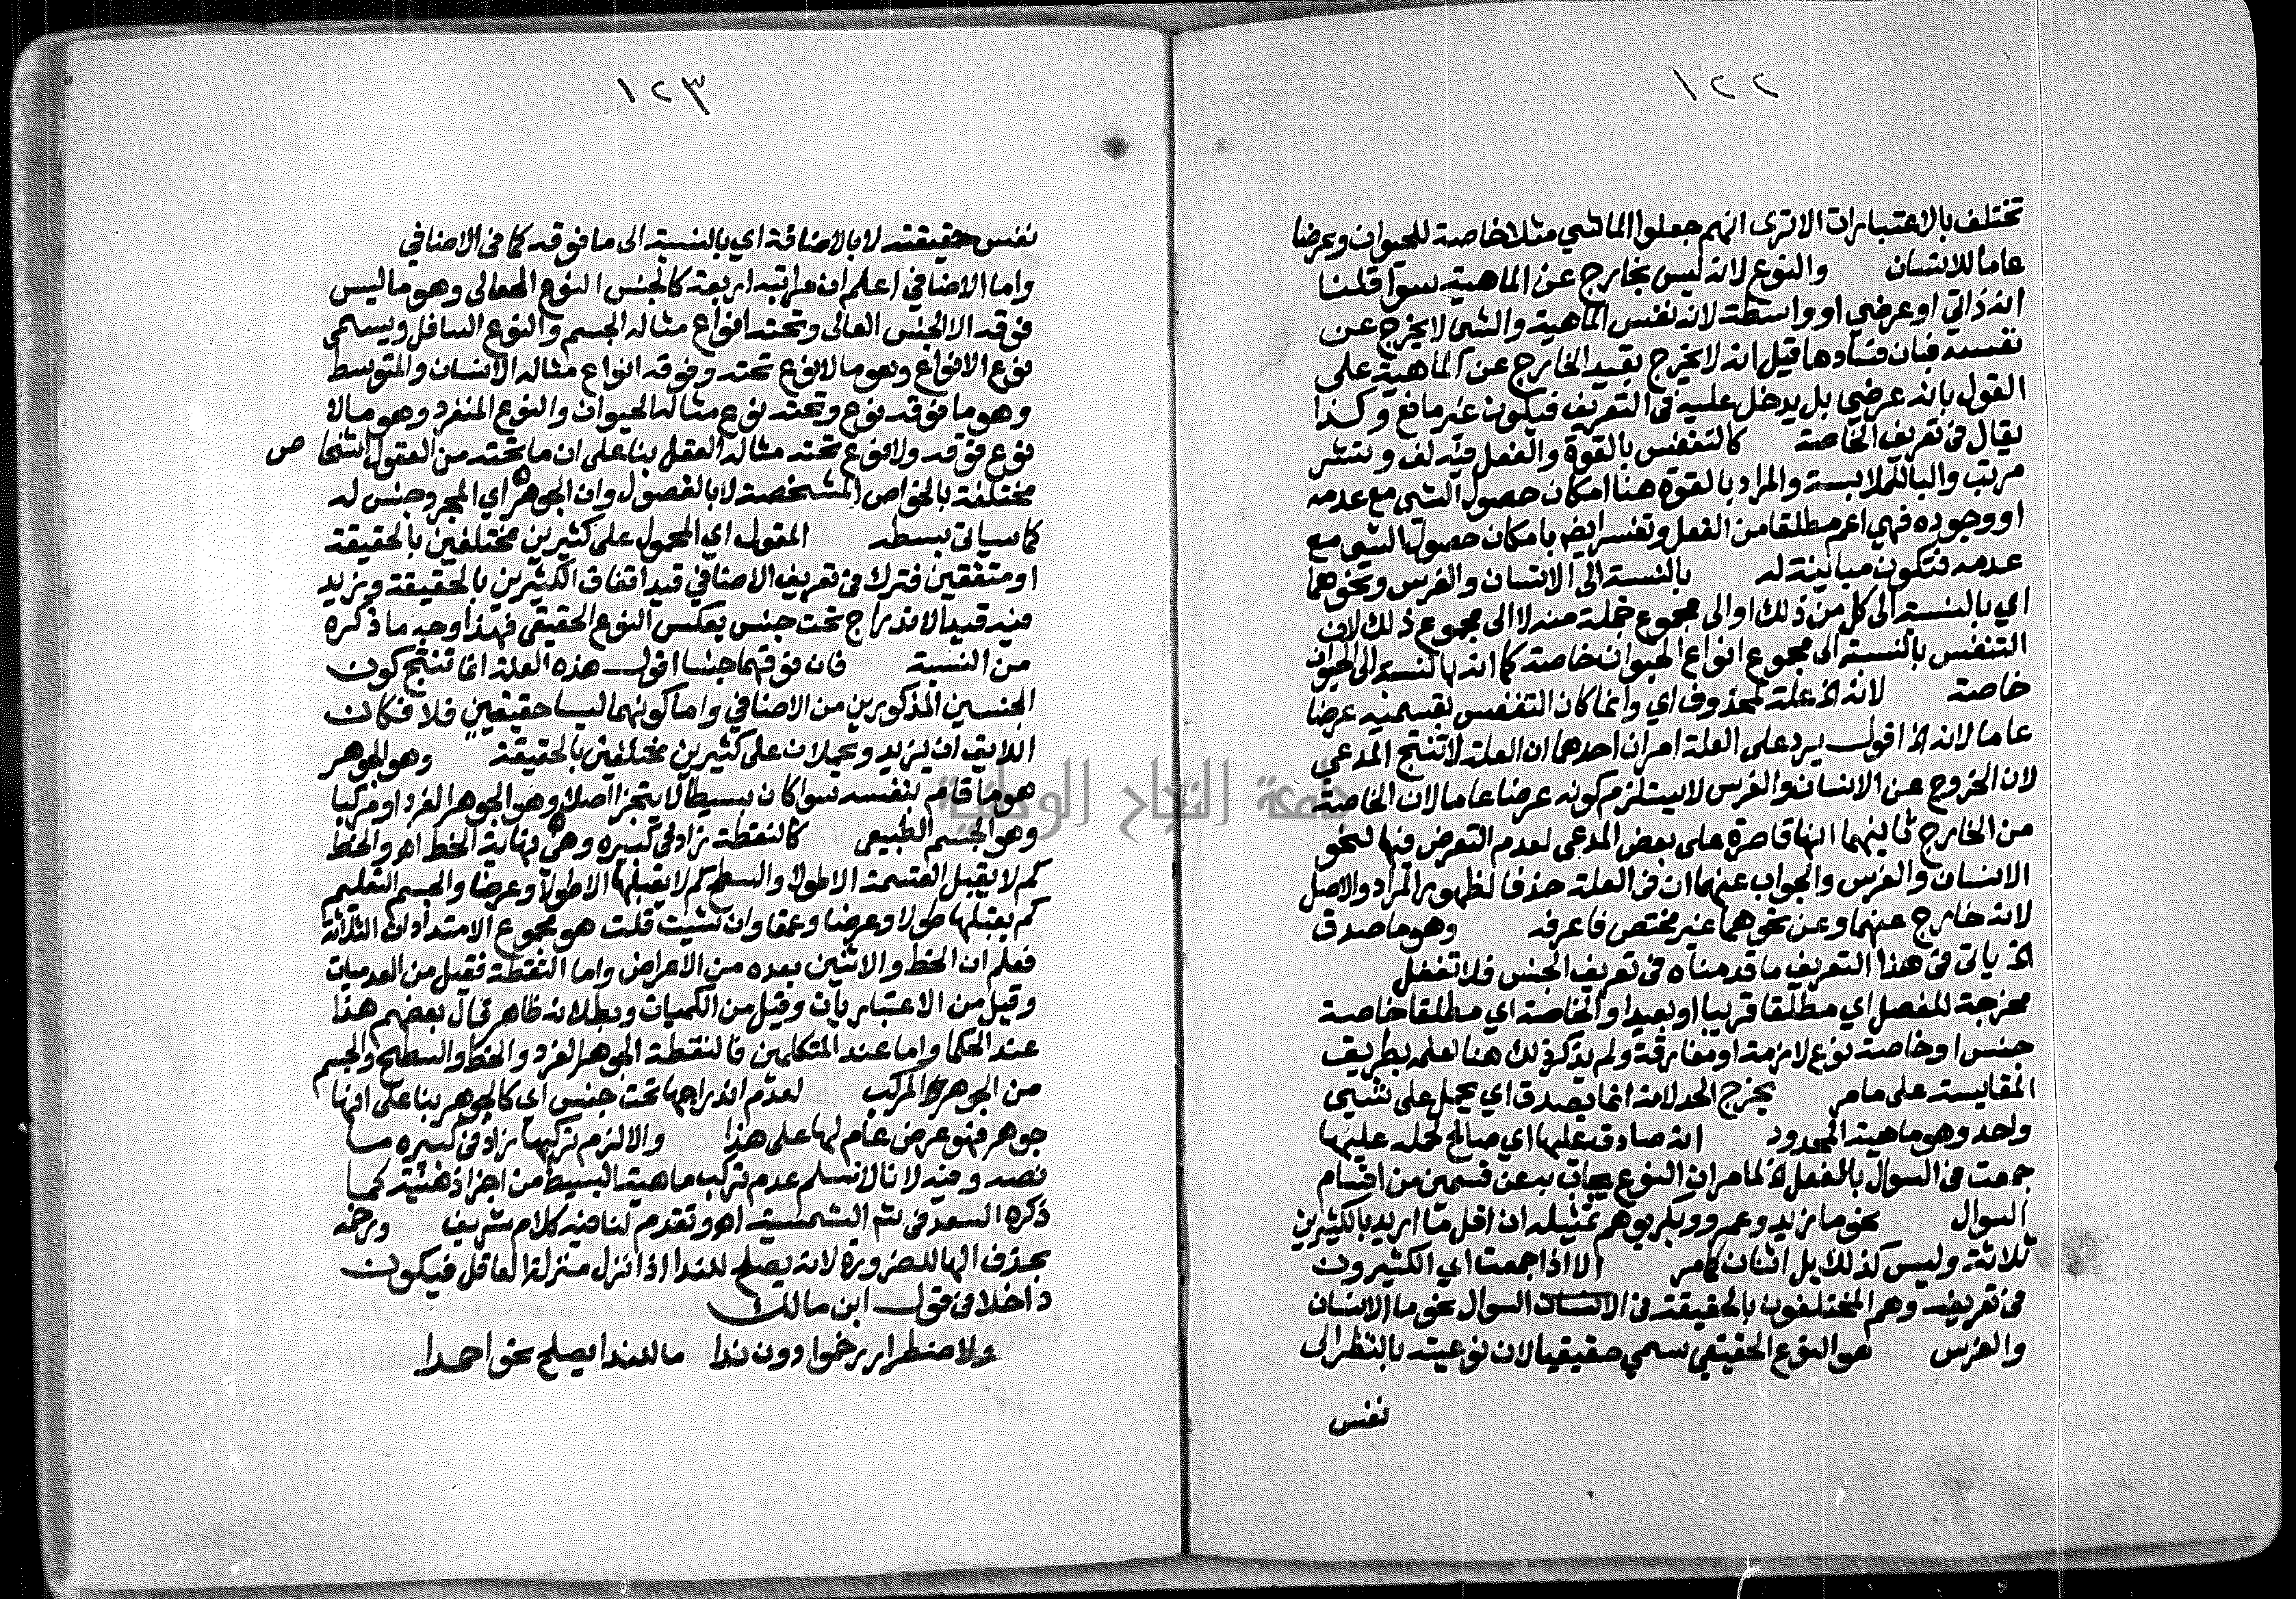 ١٢٢
تختلف بالاعتبارات الا ترى انهم جعلوا الماشي مثلا خاصة للحيوان وعرضا
عاما للانسان والنوع لانه ليس بخارج عن الماهية سوا قلنا
انه ذاتي او عرضي او واسطة لانه نفس الماهية والشي لا يخرج عن
نفسه فبان فساد ما قيل انه لا يخرج بقيد الخارج عن الماهية على
القول بانه عرضي بل يدخل عليه في التعريف فيكون غير مانع وكذا
يقال في تعريف الخاصة كالتنفس بالقوة والفعل فيه لف ونشر
مرتب والبا للملابسة والمراد بالقوة هنا امكان حصول الشي مع عدمه
او وجوده فهي اعم مطلقا من الفعل وتفسر ايضا بامكان حصول الشي مع
عدمه فتكون مباينة له بالنسبة الى الانسان والفرس ونحوهما
اي بالنسبة الى كل من ذلك او الى مجموع جملة منه لا الى مجموع ذلك لان
التنفس بالنسبة الى مجموع انواع الحيوان خاصة كما انه بالنسبة الى الحيوان
خاصة لانه الخ علة لمحذوف اي وانما كان التنفس بقسميه عرضا
عاما لانه الخ اقول يرد على العلة امران احدهما ان العلة لا تنتج المدعي
لان الخروج عن الانسان والفرس لا يستلزم كونه عرضا عاما لان الخاصة
من الخارج ثانيهما انها قاصرة على بعض المدعي لعدم التعرض فيها لنحو
الانسان والفرس والجواب عنهما ان في العلة حذفا لظهور المراد والاصل
لانه خارج عنهما وعن نحوهما غير مختص فاعرفه وهو ما صدق
الخ ياتي في هذا التعريف ما قدمناه في تعريف الجنس فلا تغفل
مخرجة للفصل اي مطلقا قريبا او بعيدا والخاصة اي مطلقا خاصة
جنس او خاصة نوع لازمة او مفارقة ولم يذكر ذلك هنا لعلمه بطريق
المقايسة على ما مر يخرج الحد لانه انما يصدق اي يحمل على شيي
واحد وهو ماهية المحدود انه صادق عليها اي صالح لحمله عليها
جمعت في السوال بالفعل الخ لما مر ان النوع يجاب به عن قسمين من اقسام
السوال نحو ما زيد وعمرو وبكر يوهم تمثيله ان اقل ما اريد بالكثيرين
ثلاثة وليس كذلك بل اثنان كما مر الا اذا جمعت اي الكثيرون
في تعريفه وهم المختلفون بالحقيقة في السوال نحو ما الانسان
والفرس هو النوع الحقيقي سمي حقيقيا لان نوعيته بالنظر الى
نفس
١٢٣
نفس حقيقته لا بالاضافة اي بالنسبة الى ما فوقه كما في الاضافي
واما الاضافي اعلم ان مراتبه اربعة كالجنس النوع العالي وهو ما ليس
فوقه الا الجنس العالي وتحته انواع مثاله الجسم والنوع السافل ويسمى
نوع الانواع وهو ما لا نوع تحته وفوقه انواع مثاله الانسان والمتوسط
وهو ما فوقه نوع وتحته نوع مثاله الحيوان والنوع المنفرد وهو ما لا
نوع فوقه ولا نوع تحته مثاله العقل بنا على ان ما تحته من العقول اشخاص
مختلفة بالخواص المشخصة لا بالفصول وان الجوهر اي المجرد جنس له
كما سياتي بسطه المقول اي المحمول على كثيرين مختلفين بالحقيقة
او متفقين فترك في تعريف الاضافي قيد اتفاق الكثيرين بالحقيقة وزيد
فيه قيد الاندراج تحت جنس بعكس النوع الحقيقي فهذا وجه ما ذكره
من النسبة فان فوقهما جنسا اقول هذه العلة انما تنتج كون
الجنسين المذكورين من الاضافي واما كونهما ليسا حقيقيين فلا فكان
اللايق ان يزيد ويحملان على كثيرين مختلفين بالحقيقة وهو الجوهر
هو ما قام بنفسه سوا كان بسيطا لا يتجزا اصلا وهو الجوهر الفرد او مركبا
وهو الجسم الطبيعي كالنقطة زاد في كبيره وهي نهاية الخط اه والخط
كم لا يقبل القسمة الا طولا والسطح كم لا يقبلها الا طولا وعرضا والجسم التعليمي
كم يقبلها طولا وعرضا وعمقا وان شيت قلت هو مجموع الامتدادات الثلاثة
فعلم ان الخط والاثنين بعده من الاعراض واما النقطة فقيل من العدميات
وقيل من الاعتباريات وقيل من الكميات وبطلانه ظاهر قال بعضهم هذا
عند الحكما واما عند المتكلمين فالنقطة الجوهر الفرد والخط والسطح والجسم
من الجوهر المركب لعدم اندراجها تحت جنس اي كالجوهر بنا على انها
جوهر فهو عرض عام لها على هذا والا لزم تركبها زاد في كبيره ما
نصه وفيه لانا لا نسلم عدم تركب ماهية البسيط من اجزا ذهنية كما
ذكره السعد في شم الشمسية اه وتقدم لنا فيه كلام شريف ورخمه
بحذف الها للضرورة لانه يصلح للندا اذا نزل منزلة العاقل فيكون
داخلا في قول ابن مالك
ولاضطرار رخموا دون ندا ما للندا يصلح نحو احمدا
جامعة النجاح الوطنية